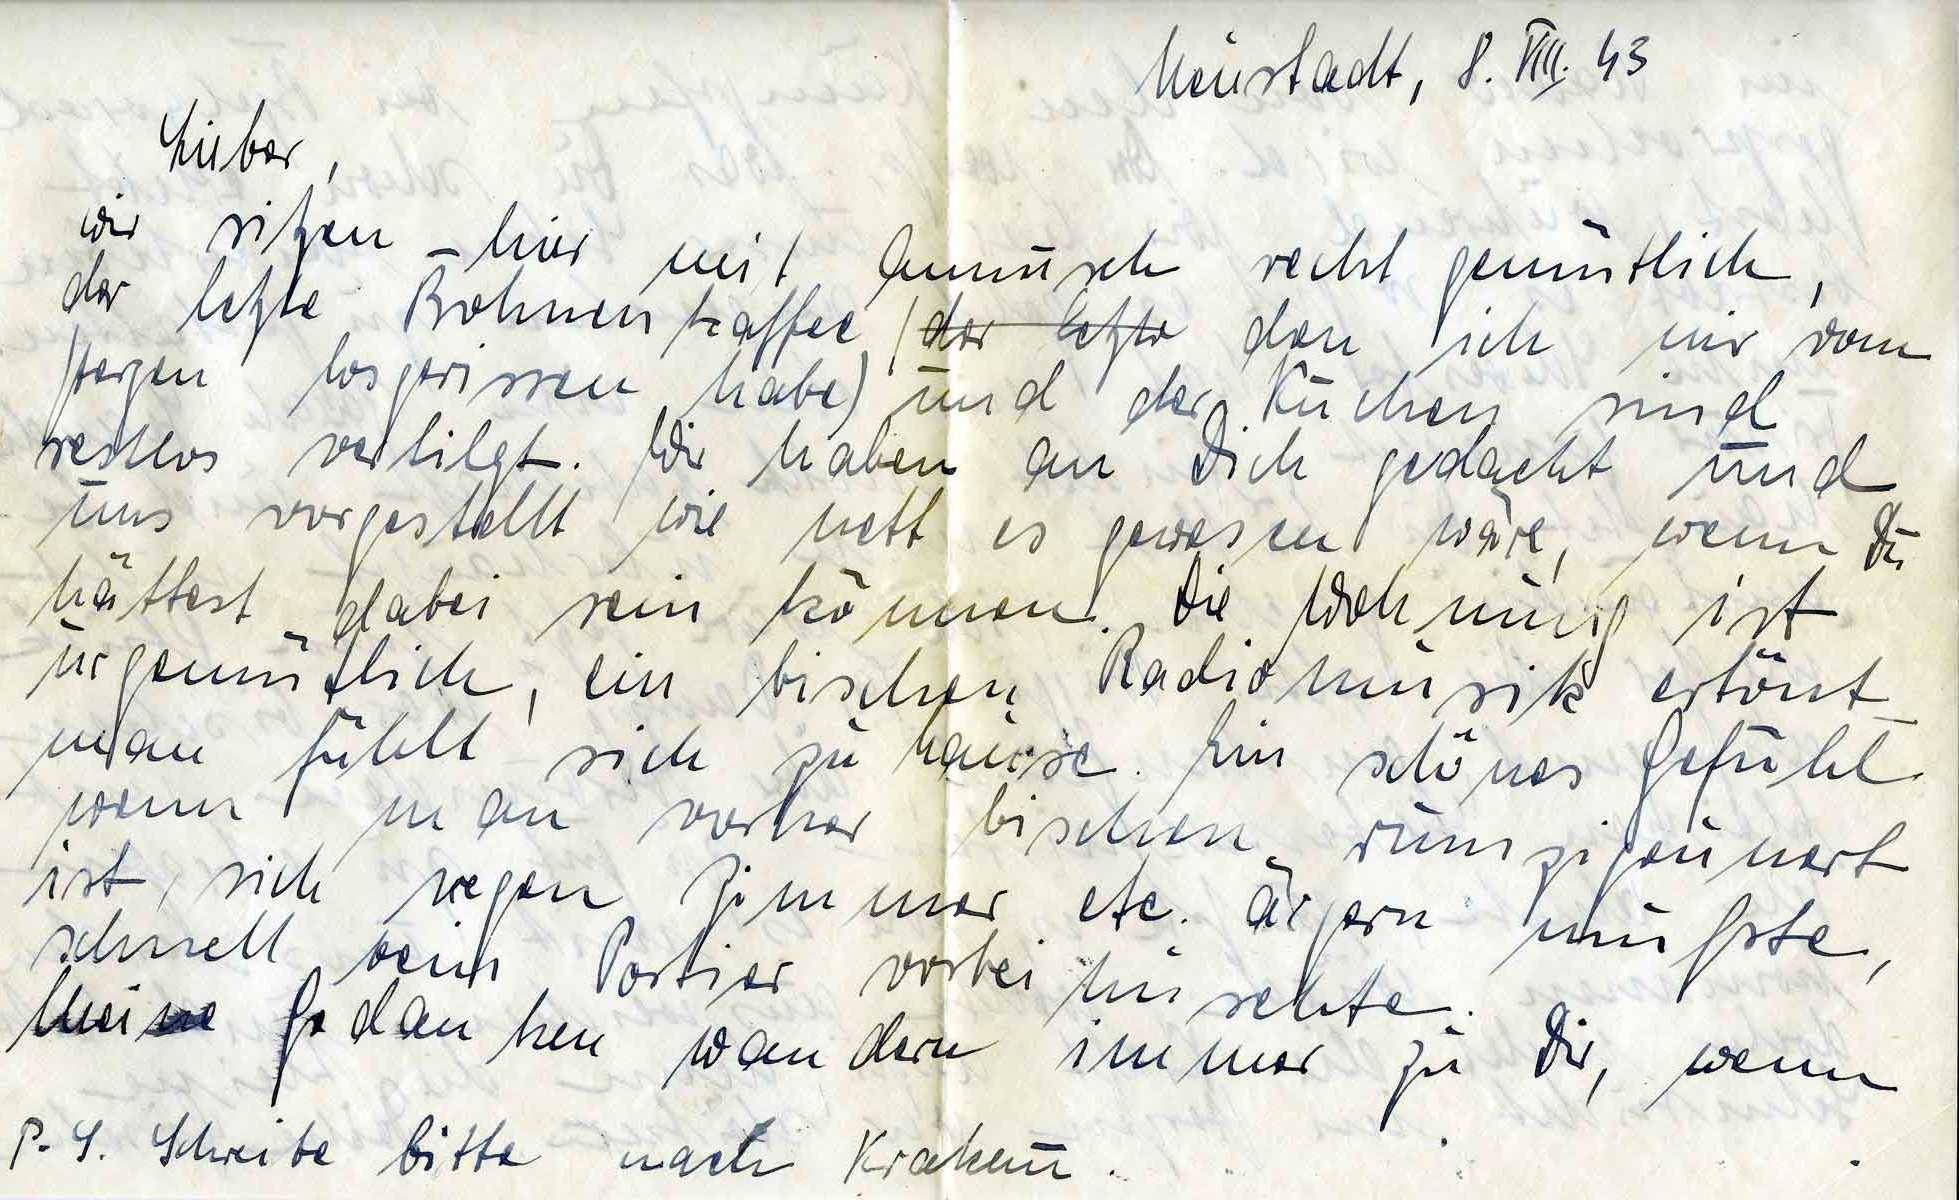 Neustadt, 8. VIII. 43
Lieber,
wir sitzen hier mit Annusch recht gemütlich,
der letzte Bohnenkaffee (der letzte den ich mir vom
Herzen losgerissen habe) und der Kuchen sind
restlos vertilgt. Wir haben an Dich gedacht und
uns vorgestellt wie nett es gewesen wäre, wenn Du
hättest dabei sein können. Die Wohnung ist
urgemütlich, ein bischen Radiomusik ertönt
man fühlt sich zu hause. Ein schönes Gefühl
wenn man vorher bischen rumzigeunert
ist, sich wegen Zimmer etc. ärgern mußste,
schnell beim Portier vorbei huschte.
Meine Gedanken wandern immer zu Dir, wenn
P.S. Schreibe bitte nach Krakau.